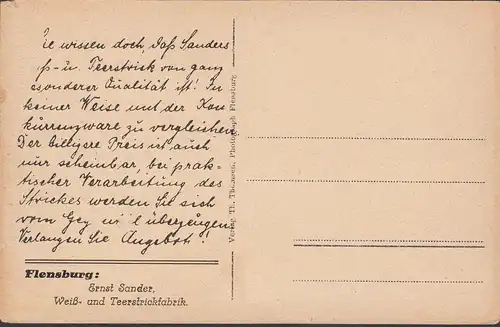 Sie wissen doch, daß Sanders
ß- u. Teerstrick von ganz
besonderer Qualität ist! In
keiner Weise mit der Kon-
kurrenzware zu vergleichen.
Der billigere Preis ist auch
nur scheinbar, bei prak-
tischer Verarbeitung des
Strickes werden Sie sich
vom Geg überzeugen.
Verlangen Sie Angebot!
Flensburg:
Ernst Sander,
Weiß- und Teerstrickfabrik.
Verlag Th. Thomsen, Photograph Flensburg